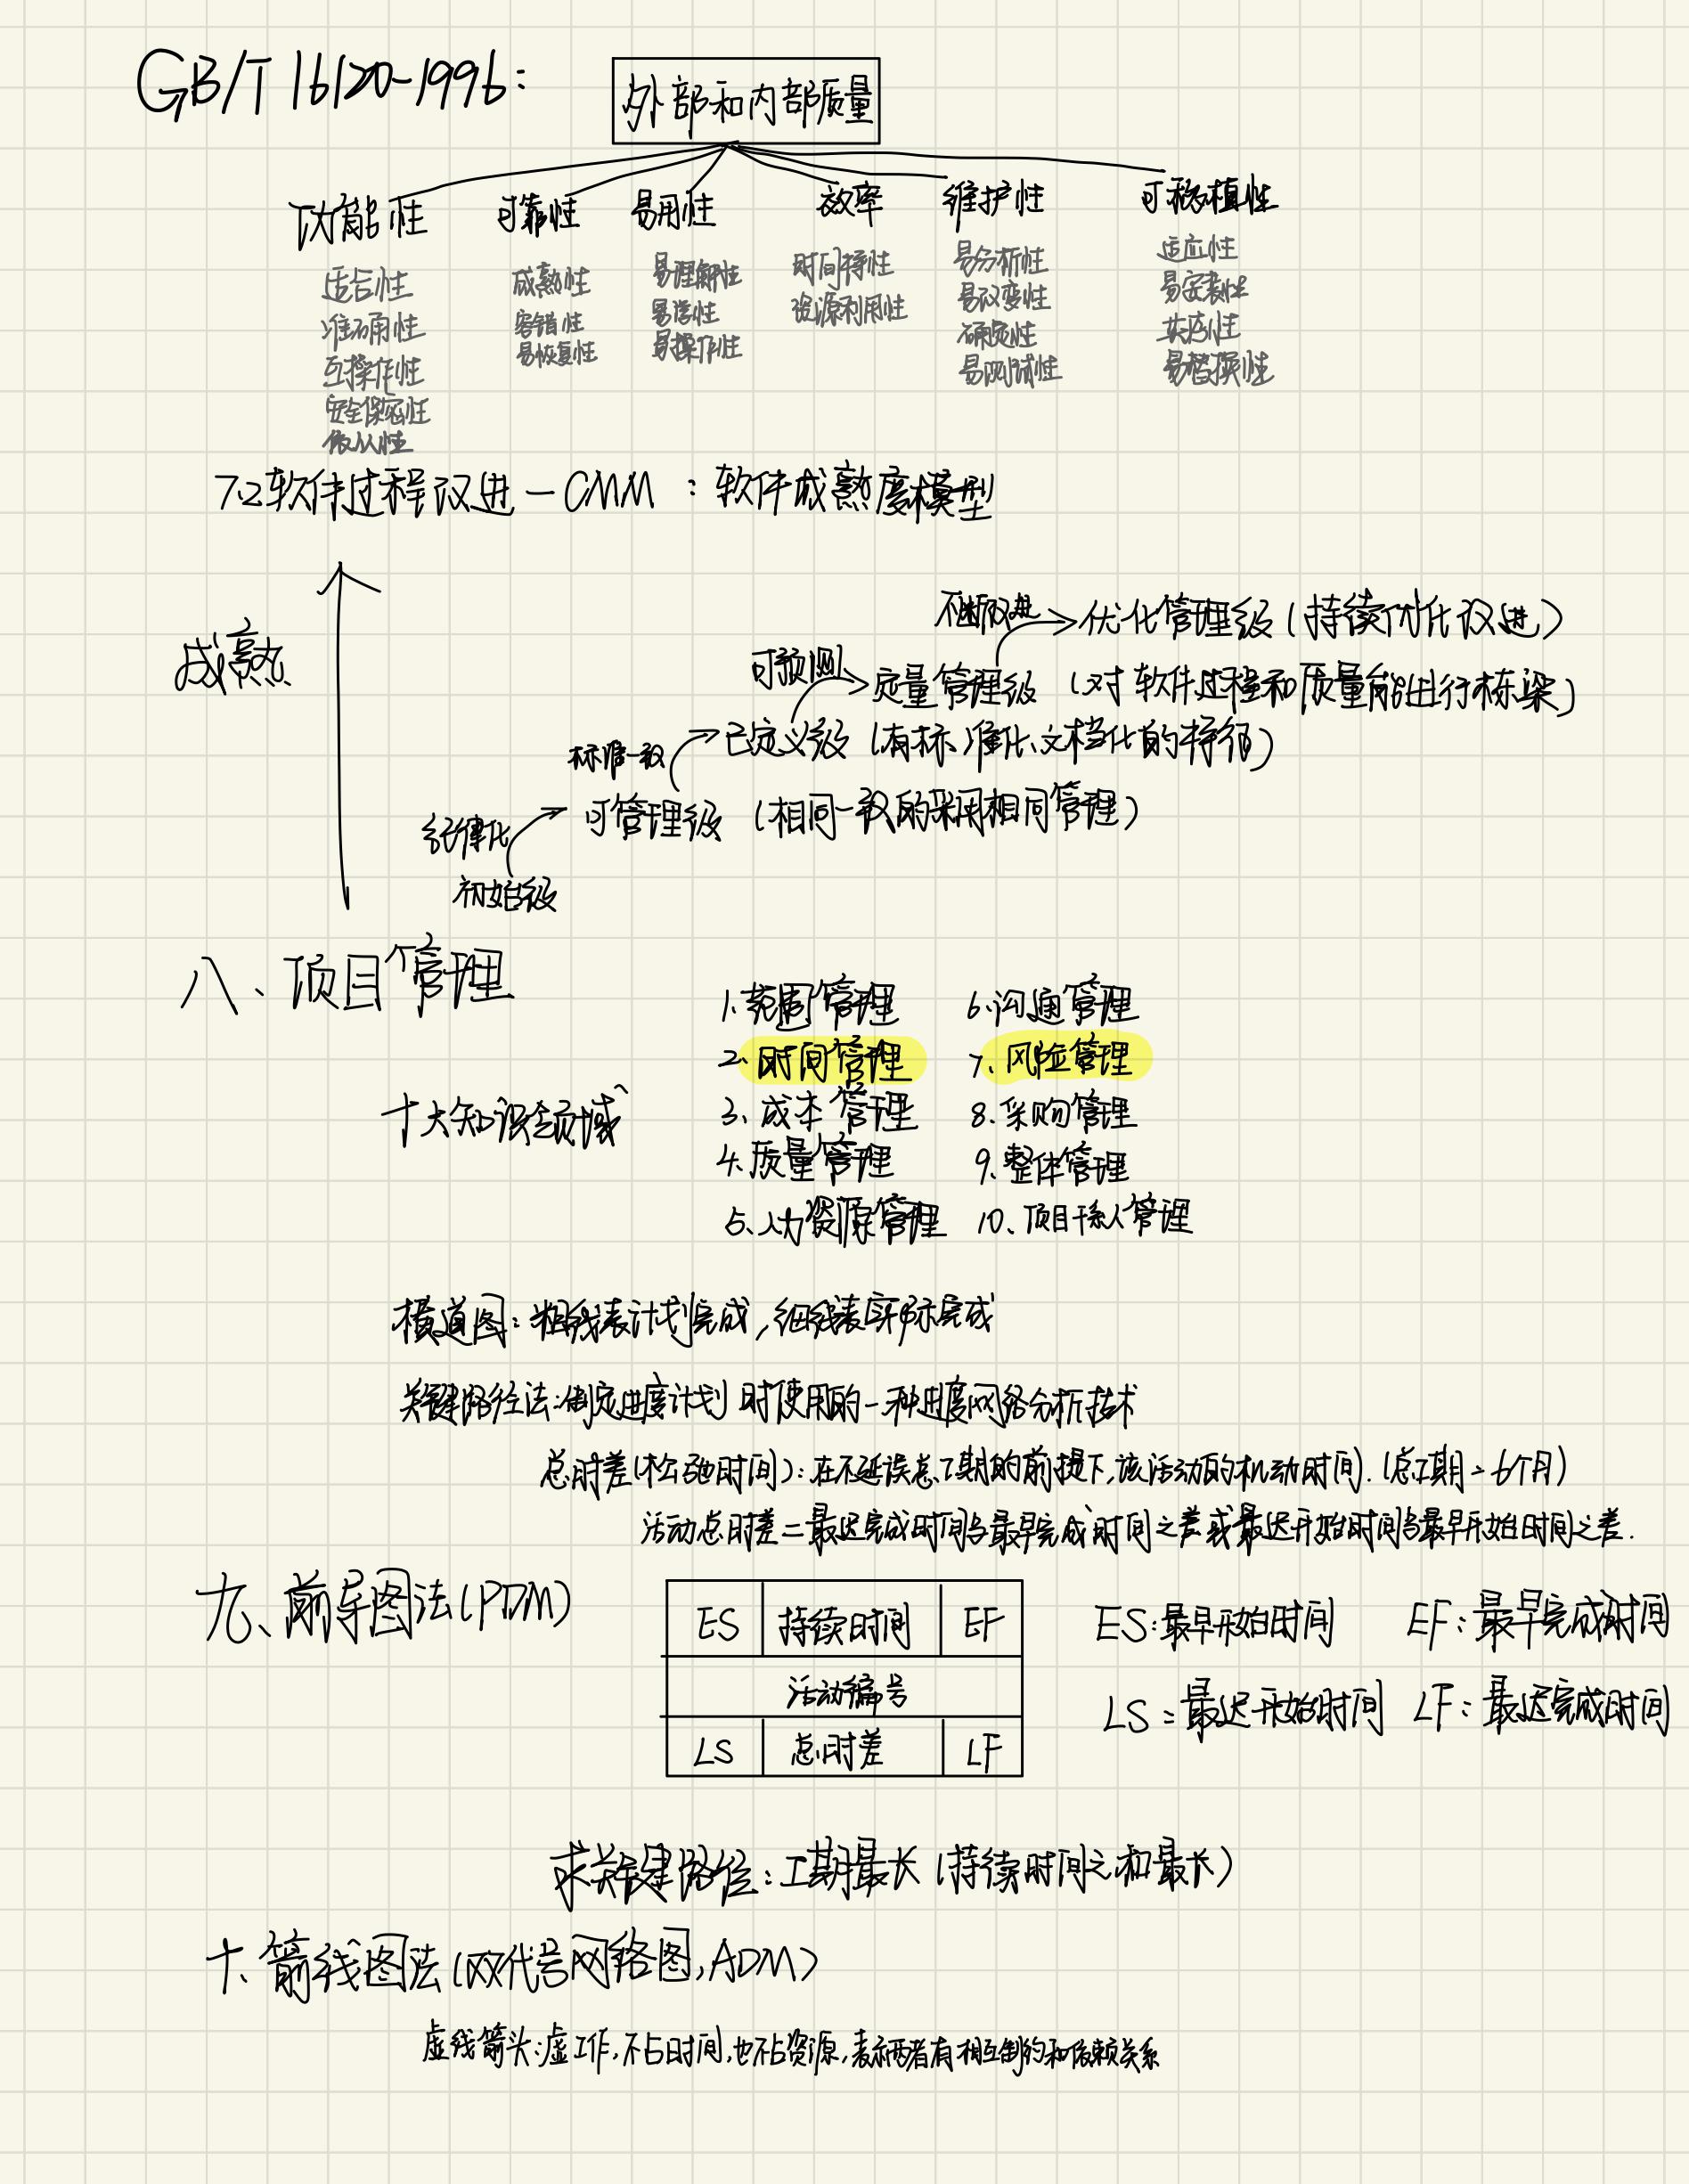 GB/T 16120-1996:
外部和内部质量
功能性 可靠性 易用性 效率 维护性 可移植性
适合性 成熟性 易理解性 时间特性 易分析性 适应性
准确性 容错性 易学性 资源利用性 易改变性 易安装性
互操作性 易恢复性 易操作性 稳定性 共存性
安全保密性 易测试性 易替换性
依从性
7.2 软件过程改进—CMM:软件成熟度模型
成熟
不断改进 优化管理级(持续优化改进)
可预测 定量管理级(对软件过程和质量能进行栋梁)
标准一致 已定义级(有标准化、文档化的特征)
纪律化 可管理级(相同一致的采用相同管理)
初始级
八、项目管理
十大知识领域
1.范围管理 6.沟通管理
2.时间管理 7.风险管理
3.成本管理 8.采购管理
4.质量管理 9.整体管理
5.人力资源管理 10、项目干系人管理
横道图:粗线表计划完成,细线表实际完成
关键路径法:制定进度计划时使用的一种进度网络分析技术
总时差(松弛时间):在不延误总工期的前提下,该活动的机动时间.(总工期=6个月)
活动总时差=最迟完成时间与最早完成时间之差或最迟开始时间与最早开始时间之差.
九、前导图法(PDM)
ES 持续时间 EF
活动编号
LS 总时差 LF
ES:最早开始时间 EF:最早完成时间
LS:最迟开始时间 LF:最迟完成时间
求关键路径:工期最长(持续时间之和最长)
十、箭线图法(双代号网络图,ADM)
虚线箭头:虚工作,不占时间,也不占资源,表示两者有相互制约和依赖关系